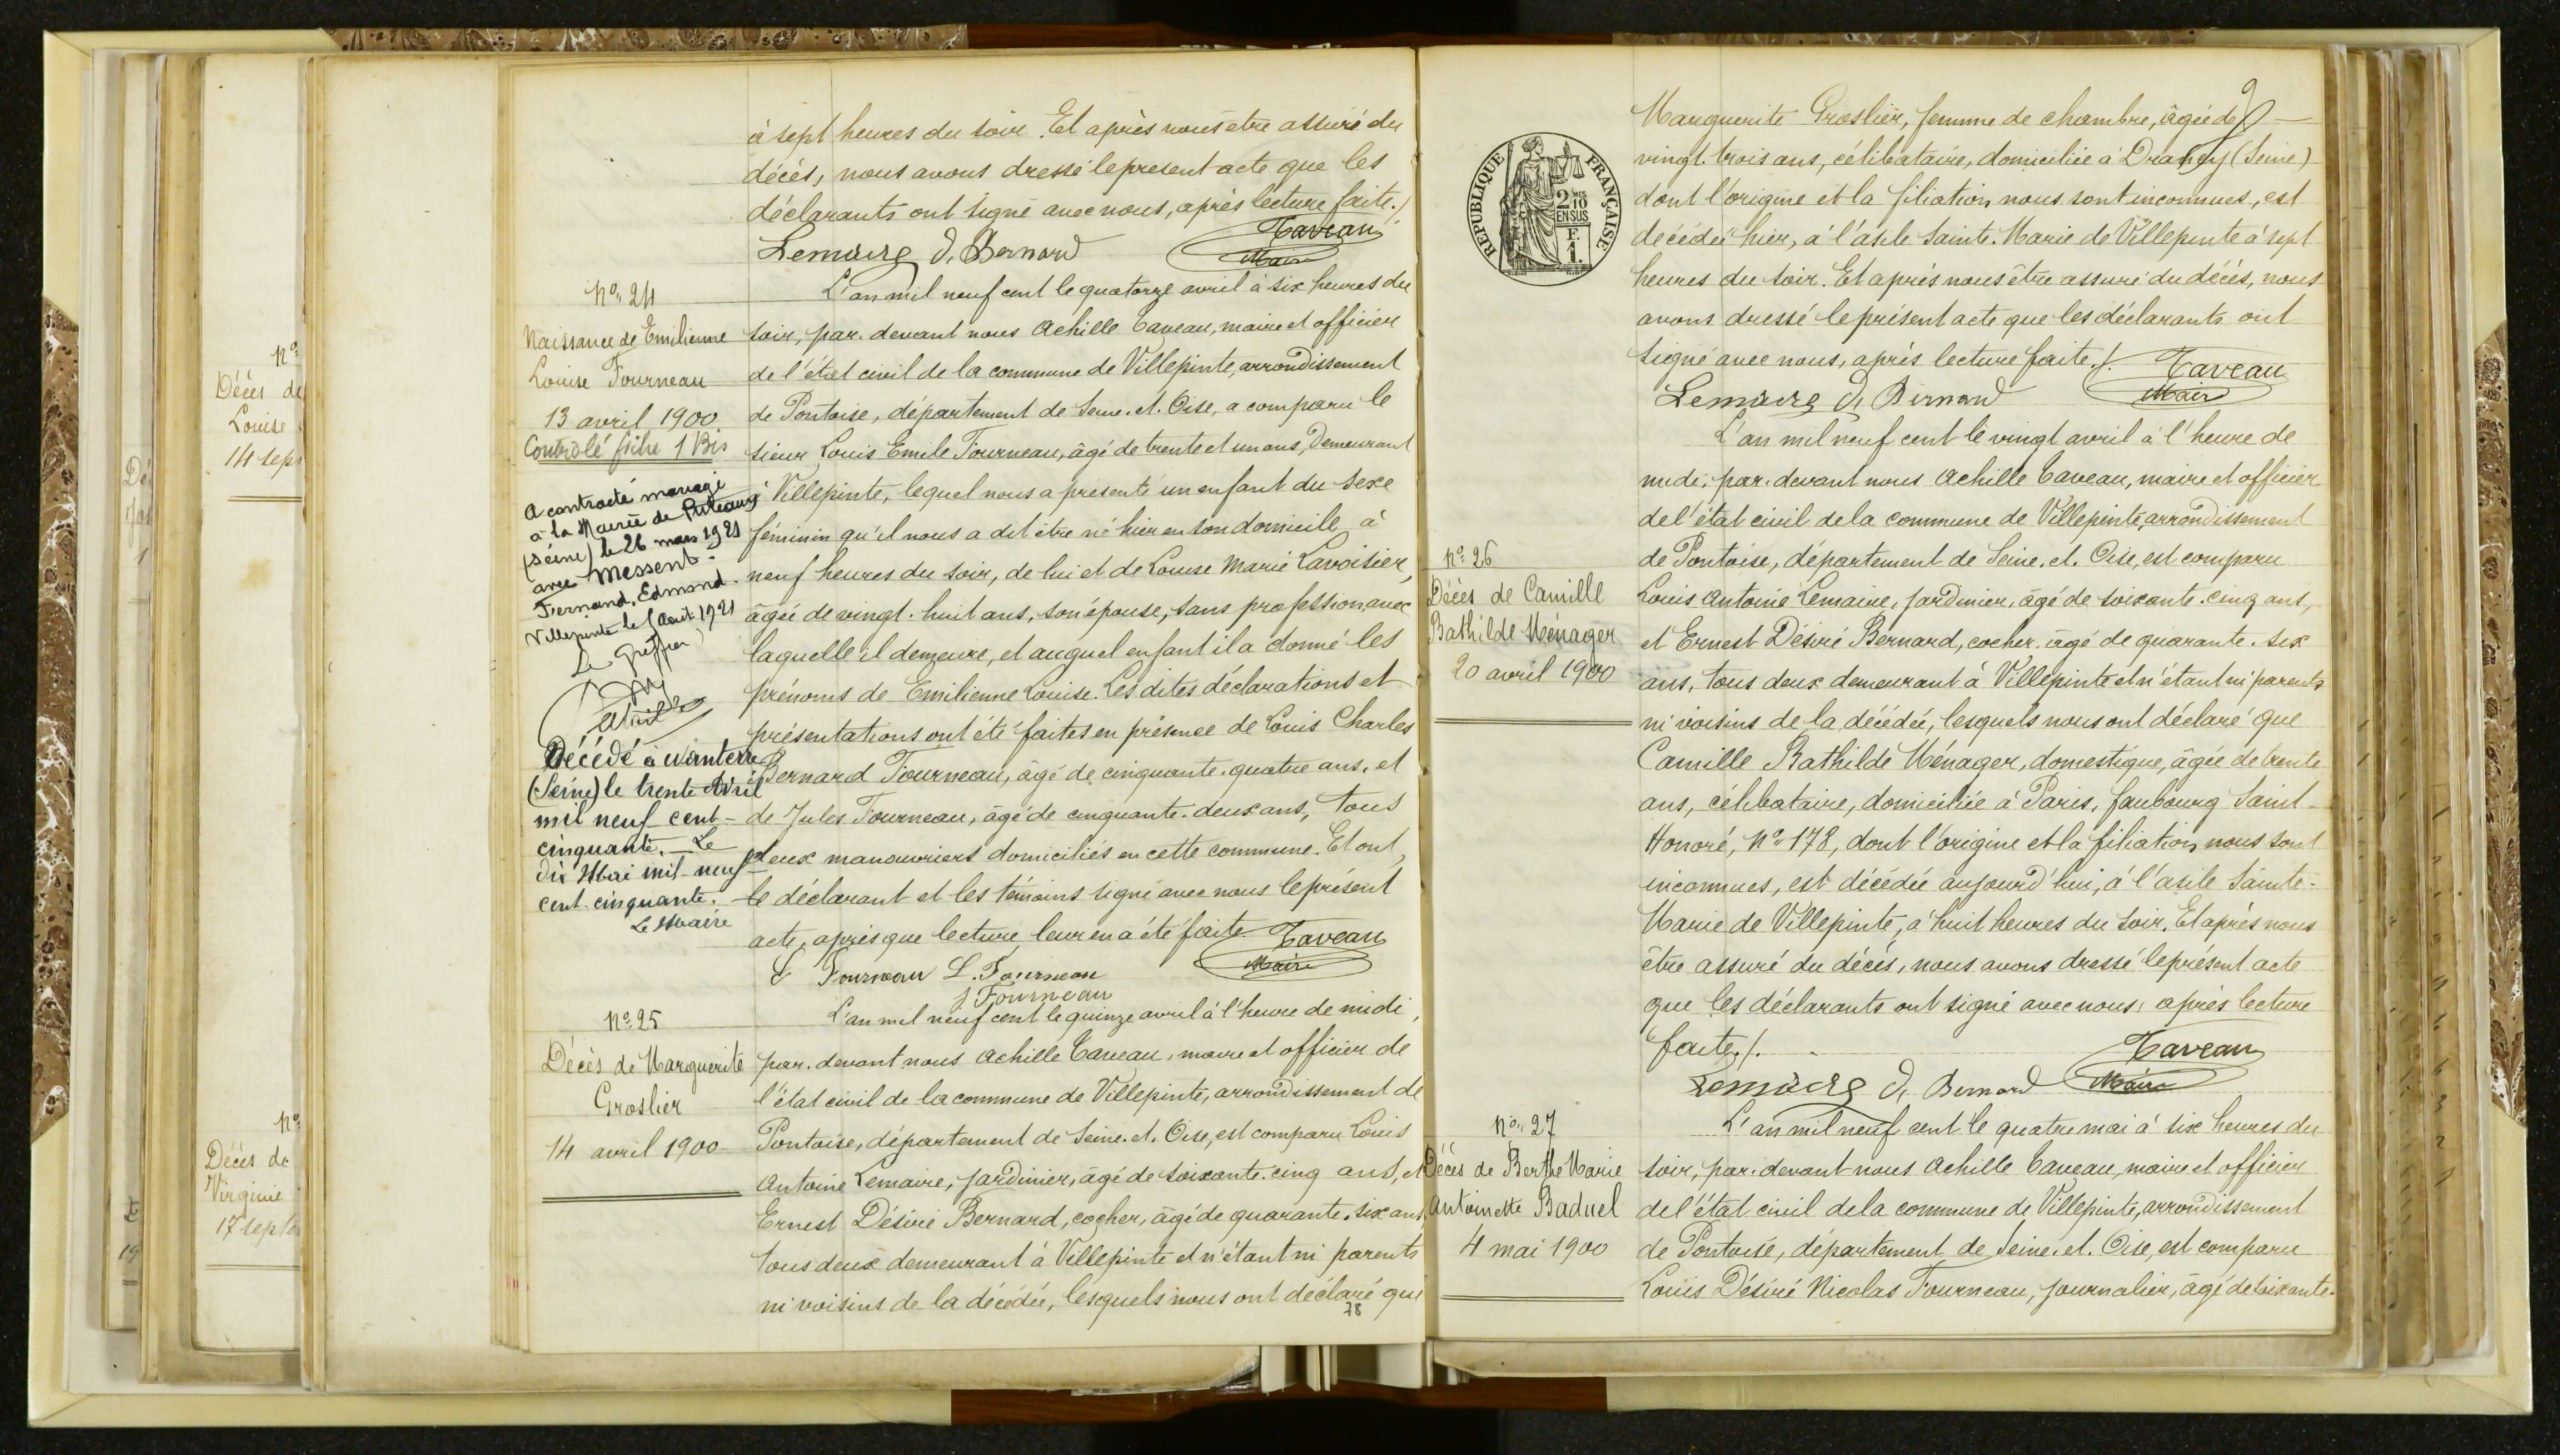 à sept heures du soir. Et après nous être assuré du
décès, nous avons dressé le present acte que les
déclarants ont signé avec nous, après lecture faite./.
Taveau
Lemaire D. Bernard
Maire
Nº 24
Naissance de Emilienne
Louise Fourneau
13 avril 1900.
Contrôlé fiche 1 Bis
A contracté mariage
à la Mairie de Puteaux
(Seine) le 26 mars 1921
avec Messent
Fernand, Edmond.
Villepinte le 1 Août 1921
Le Greffier
Décédé à Nanterre
(Seine) le trente Avril
mil neuf cent
cinquante. Le
dix Mai mil neuf
cent cinquante.
Le Maire
L'an mil neuf cent le quatorze avril à six heures du
soir, par devant nous Achille Taveau, maire et officier
de l'état civil de la commune de Villepinte, arrondissement
de Pontoise, département de Seine-et-Oise, a comparu le
sieur Louis Emile Fourneau, âgé de trente et un ans, demeurant
à Villepinte, lequel nous a présenté un enfant du sexe
féminin qu'il nous a dit être né hier en son domicile à
neuf heures du soir, de lui et de Louise Marie Lavoisier,
âgée de vingt-huit ans, son épouse, sans profession, avec
laquelle il demeure, et auquel enfant il a donné les
prénoms de Emilienne Louise. Les dites déclarations et
présentations ont été faites en présence de Louis Charles
Bernard Fourneau, âgé de cinquante-quatre ans, et
de Jules Fourneau, âgé de cinquante-deux ans, tous
deux manouvriers domiciliés en cette commune. Et ont
le déclarant et les témoins signé avec nous le présent
acte, après que lecture leur en a été faite. Taveau
Maire
Fourneau L. Fourneau
J Fourneau
Nº 25
Décès de Marguerite
Groslier
14 avril 1900
L'an mil neuf cent le quinze avril à l'heure de midi,
par devant nous Achille Taveau, maire et officier de
l'état civil de la commune de Villepinte, arrondissement de
Pontoise, département de Seine-et-Oise, est comparu Louis
Antoine Lemaire, jardinier, âgé de soixante-cinq ans, et
Ernest Désiré Bernard, cocher, âgé de quarante-six ans,
tous deux demeurant à Villepinte et n'étant ni parents
ni voisins de la décédée, lesquels nous ont déclaré que
78
9
Marguerite Groslier, femme de chambre, âgée de
vingt-trois ans, célibataire, domiciliée à Drancy (Seine)
dont l'origine et la filiation nous sont inconnues, est
décédée hier, à l'asile Sainte-Marie de Villepinte à sept
heures du soir. Et après nous être assuré du décès, nous
avons dressé le présent acte que les déclarants ont
signé avec nous, après lecture faite./. Taveau
Lemaire D. Bernard
Maire
RÉPUBLIQUE FRANÇAISE
2/10
EN SUS
F.
1.
Nº 26
Décès de Camille
Bathilde Ménager
20 avril 1900
L'an mil neuf cent le vingt avril à l'heure de
midi, par devant nous Achille Taveau, maire et officier
de l'état civil de la commune de Villepinte, arrondissement
de Pontoise, département de Seine-et-Oise, est comparu
Louis Antoine Lemaire, jardinier, âgé de soixante-cinq ans,
et Ernest Désiré Bernard, cocher, âgé de quarante-six
ans, tous deux demeurant à Villepinte et n'étant ni parents
ni voisins de la décédée, lesquels nous ont déclaré que
Camille Bathilde Ménager, domestique, âgée de trente
ans, célibataire, domiciliée à Paris, faubourg Saint-
Honoré, Nº 178, dont l'origine et la filiation nous sont
inconnues, est décédée aujourd'hui, à l'asile Sainte-
Marie de Villepinte, à huit heures du soir. Et après nous
être assuré du décès, nous avons dressé le présent acte
que les déclarants ont signé avec nous, après lecture
faite./. Taveau
Lemaire D. Bernard Maire
Nº 27
Décès de Berthe Marie
Antoinette Baduel
4 mai 1900
L'an mil neuf cent le quatre mai à six heures du
soir, par devant nous Achille Taveau, maire et officier
de l'état civil de la commune de Villepinte, arrondissement
de Pontoise, département de Seine-et-Oise, est comparu
Louis Désiré Nicolas Fourneau, journalier, âgé de soixante-
Nº
Décès de
Louise
14 sept
Nº
Décès de
Virginie
17 sept